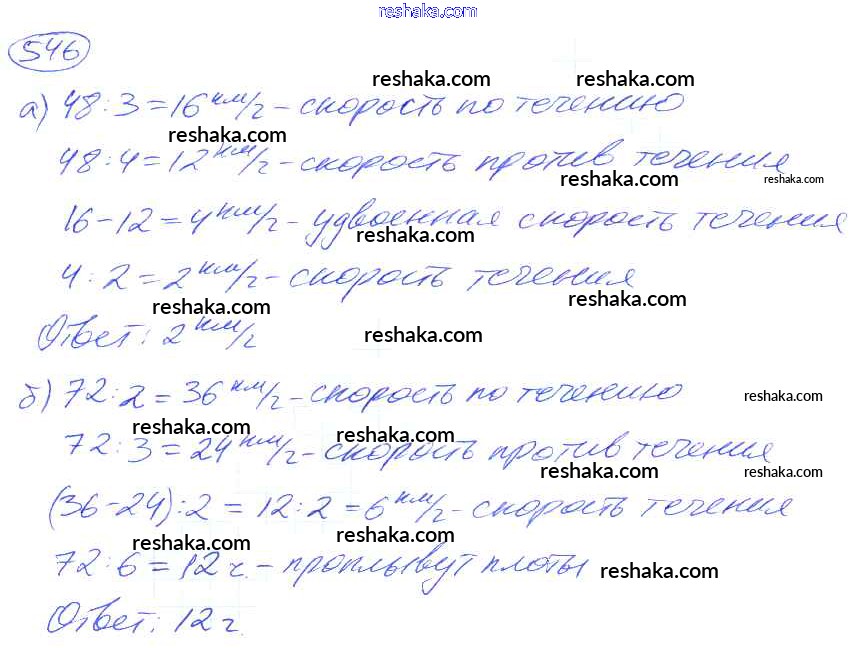 reshaka.com
546
reshaka.com reshaka.com
а) 48 : 3 = 16 км/г – скорость по течению
reshaka.com
48 : 4 = 12 км/г – скорость против течения
reshaka.com reshaka.com
16 – 12 = 4 км/г – удвоенная скорость течения
reshaka.com
4 : 2 = 2 км/г – скорость течения
reshaka.com reshaka.com
Ответ: 2 км/г
reshaka.com
б) 72 : 2 = 36 км/г – скорость по течению
reshaka.com
reshaka.com reshaka.com
72 : 3 = 24 км/г – скорость против течения
reshaka.com reshaka.com
(36 – 24) : 2 = 12 : 2 = 6 км/г – скорость течения
reshaka.com reshaka.com
72 : 6 = 12 г. – проплывут плоты
reshaka.com
Ответ: 12 г.